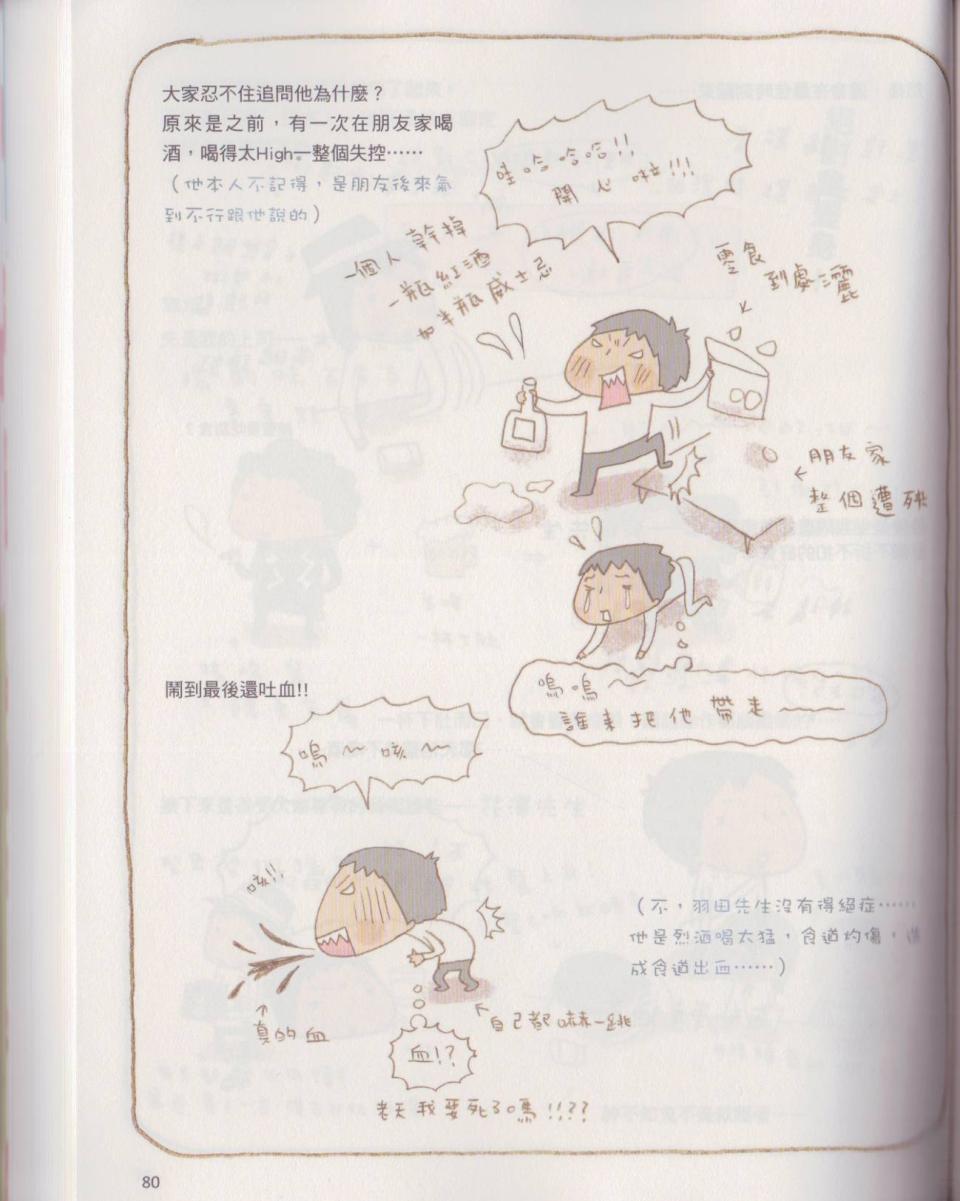 大家忍不住追問他為什麼？
原來是之前，有一次在朋友家喝
酒，喝得太High一整個失控……
（他本人不記得，是朋友後來氣
到不行跟他說的）
哇哈哈哈!!
開心啦!!!
一個人幹掉
一瓶紅酒
加半瓶威士忌
零食
到處灑
朋友家
整個遭殃
嗚嗚～
誰來把他帶走——
鬧到最後還吐血!!
嗚～咳～
咳!!
真的血
自己都嚇一跳
血!?
老天我要死了嗎!!??
（不，羽田先生沒有得絕症……
他是烈酒喝太猛，食道灼傷，
成食道出血……）
80